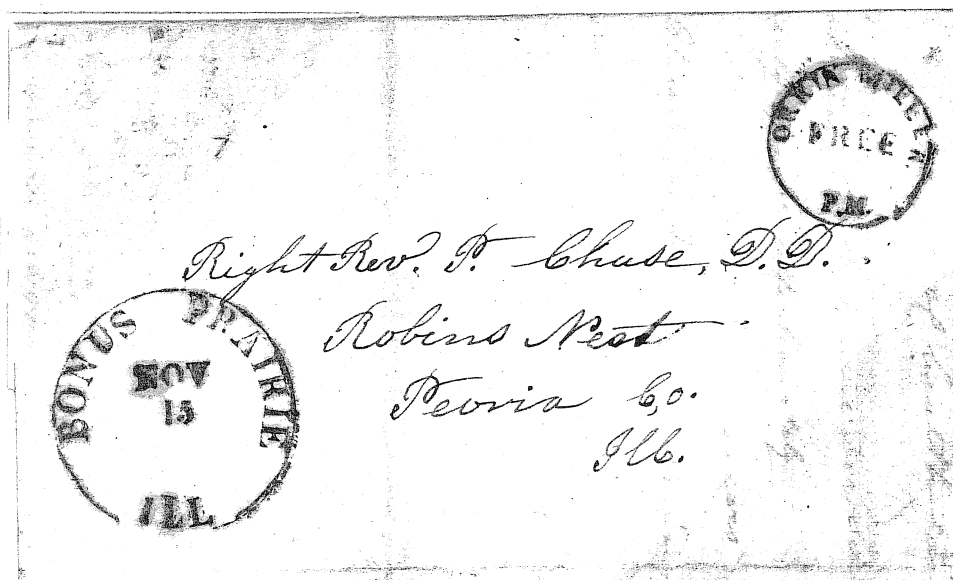 ORRIN MILLER
FREE
P.M.
Right Rev. P. Chase, D.D.
Robins Nest
Peoria Co.
Ill.
BONUS PRAIRIE
NOV
15
ILL